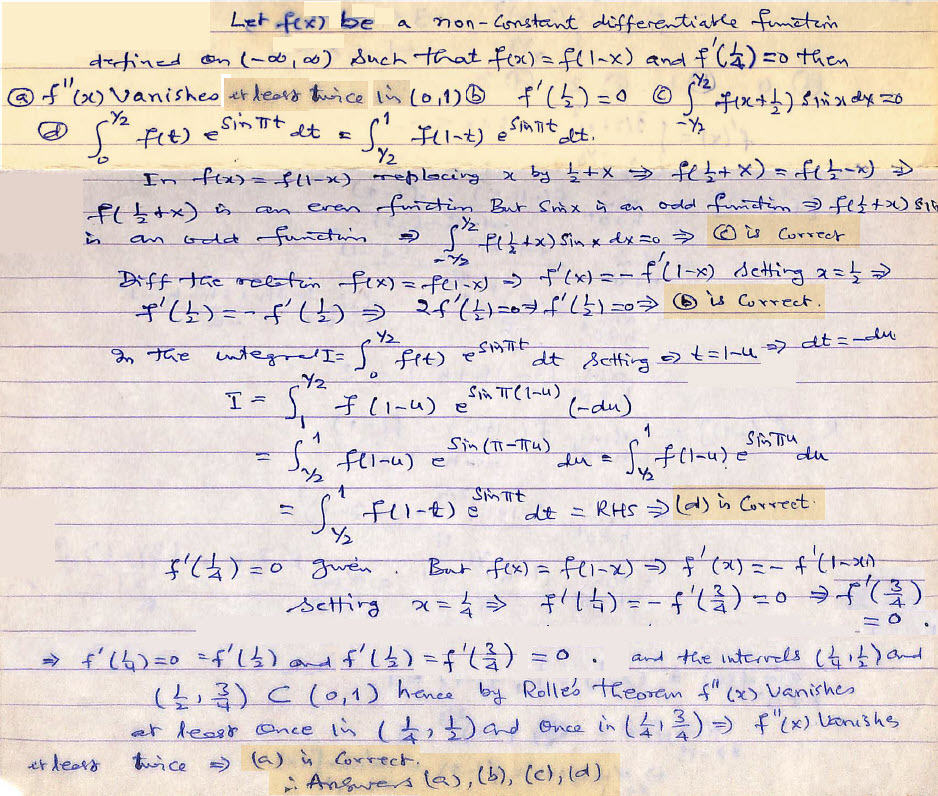 Let f(x) be a non-constant differentiable function
defined on (-∞, ∞) such that f(x) = f(1-x) and f'(1/4) = 0 then
(a) f''(x) vanishes at least twice in (0,1) (b) f'(1/2) = 0 (c) ∫_{-1/2}^{1/2} f(x+1/2) sin x dx = 0
(d) ∫_0^{1/2} f(t) e^{sin πt} dt = ∫_{1/2}^1 f(1-t) e^{sin πt} dt.
In f(x) = f(1-x) replacing x by 1/2+x ⇒ f(1/2+x) = f(1/2-x) ⇒
f(1/2+x) is an even function But sin x is an odd function ⇒ f(1/2+x) sin
is an odd function ⇒ ∫_{-1/2}^{1/2} f(1/2+x) sin x dx = 0 ⇒ (c) is correct
Diff the relation f(x) = f(1-x) ⇒ f'(x) = -f'(1-x) setting x = 1/2 ⇒
f'(1/2) = -f'(1/2) ⇒ 2f'(1/2) = 0 ⇒ f'(1/2) = 0 ⇒ (b) is correct.
In the integral I = ∫_0^{1/2} f(t) e^{sin πt} dt setting ⇒ t = 1-u ⇒ dt = -du
I = ∫_1^{1/2} f(1-u) e^{sin π(1-u)} (-du)
= ∫_{1/2}^1 f(1-u) e^{sin(π-πu)} du = ∫_{1/2}^1 f(1-u) e^{sin πu} du
= ∫_{1/2}^1 f(1-t) e^{sin πt} dt = RHS ⇒ (d) is correct.
f'(1/4) = 0 given. But f(x) = f(1-x) ⇒ f'(x) = -f'(1-x)
setting x = 1/4 ⇒ f'(1/4) = -f'(3/4) = 0 ⇒ f'(3/4)
= 0.
⇒ f'(1/4) = 0 = f'(1/2) and f'(1/2) = f'(3/4) = 0. and the intervals (1/4, 1/2) and
(1/2, 3/4) ⊂ (0,1) hence by Rolle's theorem f''(x) vanishes
at least once in (1/4, 1/2) and once in (1/2, 3/4) ⇒ f''(x) vanishes
at least twice ⇒ (a) is correct.
∴ Answers (a), (b), (c), (d)